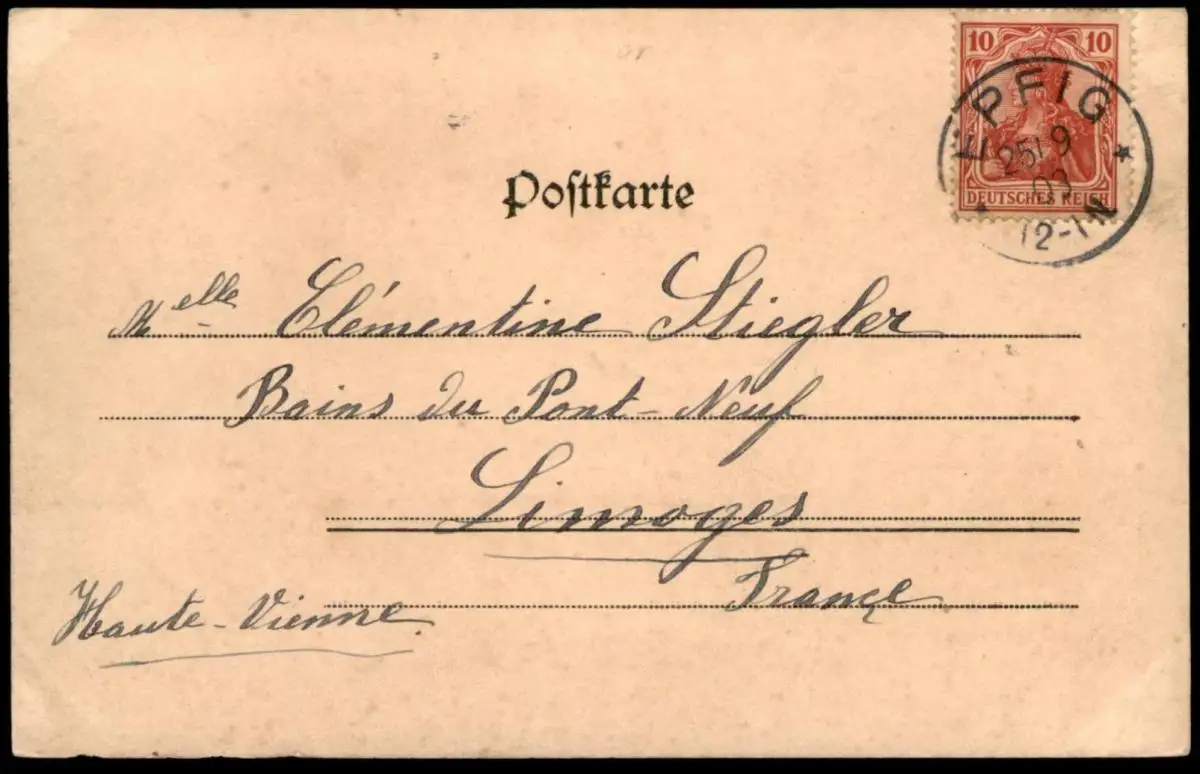 10 10
EPFIG
25/ 9
03
12-1N
DEUTSCHES REICH
Poſtkarte
Melle Clémentine Stiegler
Bains du Pont-Neuf
Limoges
France
Haute-Vienne